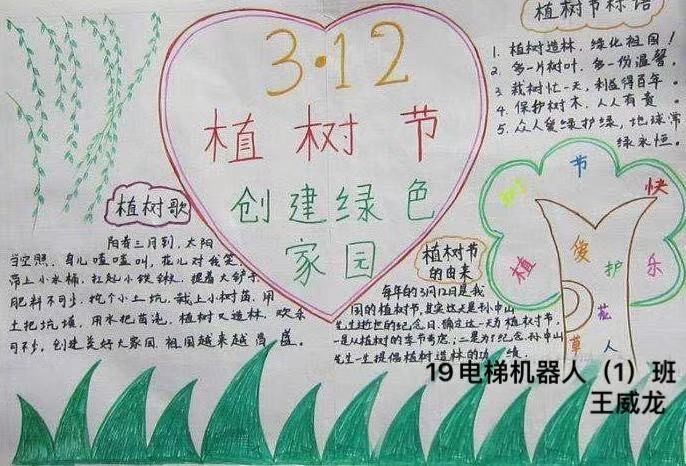 3·12
植树节
创建绿色
家园
植树节标语
1. 植树造林，绿化祖国！
2. 多一片树叶，多一份温馨。
3. 栽树忙一天，利益得百年。
4. 保护树木，人人有责。
5. 众人爱绿护绿，地球常
绿永恒。
植树歌
阳春三月到，太阳
当空照，鸟儿喳喳叫，花儿对我笑，
带上小水桶，扛起小铁锹，提着大铲子
肥料不可少，挖个小土坑，栽上小树苗，用
土把坑填，用水把苗浇，植树又造林，欢乐
可不少，创建美好大家园，祖国越来越昌盛。
植树节
的由来
每年的3月12日是我
国的植树节，其实这天是孙中山
先生逝世的纪念日，确定这一天为植树节，
一是从植树的季节考虑；二是为了纪念孙中山
先生一生提倡植树造林的功绩。
植
树
节
快
乐
爱
护
花
草
人
19电梯机器人（1）班
王威龙